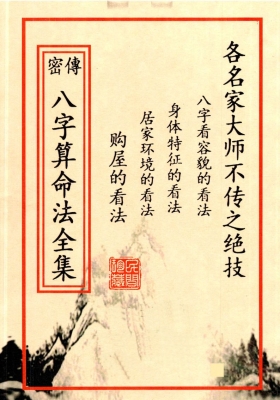 各名家大师不传之绝技
八字看容貌的看法
身体特征的看法
居家环境的看法
购屋的看法
密傳
八字算命法全集